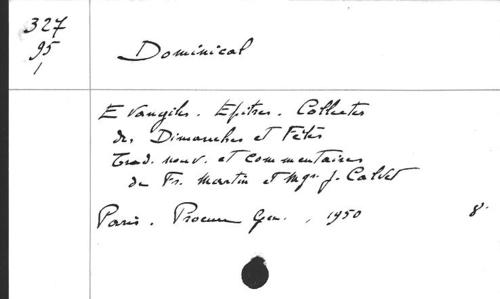 327
95
1
Dominical
Evangiles. Epitres. Collectes
des Dimanches et Fêtes
Trad. nouv. et commentaires
de Fr. Martin et Mgr. J. Calvet
Paris. Procure Gén., 1950 8°